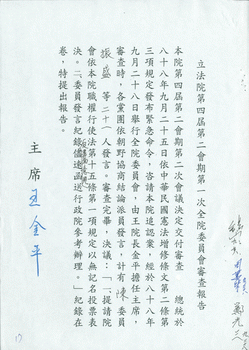 立法院第四屆第二會期第一次全院委員會審查報告
本院第四屆第二會期第二次會議決定交付審查　總統於
八十八年九月二十五日依中華民國憲法增修條文第二條第
三項規定發布緊急命令，咨請本院追認案，經於八十八年
九月二十八日舉行全院委員會，由王院長金平擔任主席，
審查時，各黨團依朝野協商結論派員發言，計有陳委員
振盛等二十一人發言。審查完畢，決議：「一、提請院
會依本院職權行使法第十五條第一項規定以無記名投票表
決。二、委員發言紀錄儘速函送行政院參考辦理。」紀錄在
卷，特提出報告。
主席　王金平